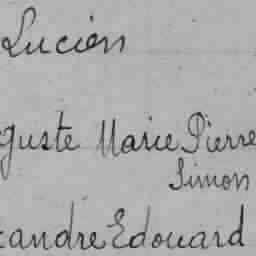 Lucien
guste Marie Pierre
Simon
candre Edouard